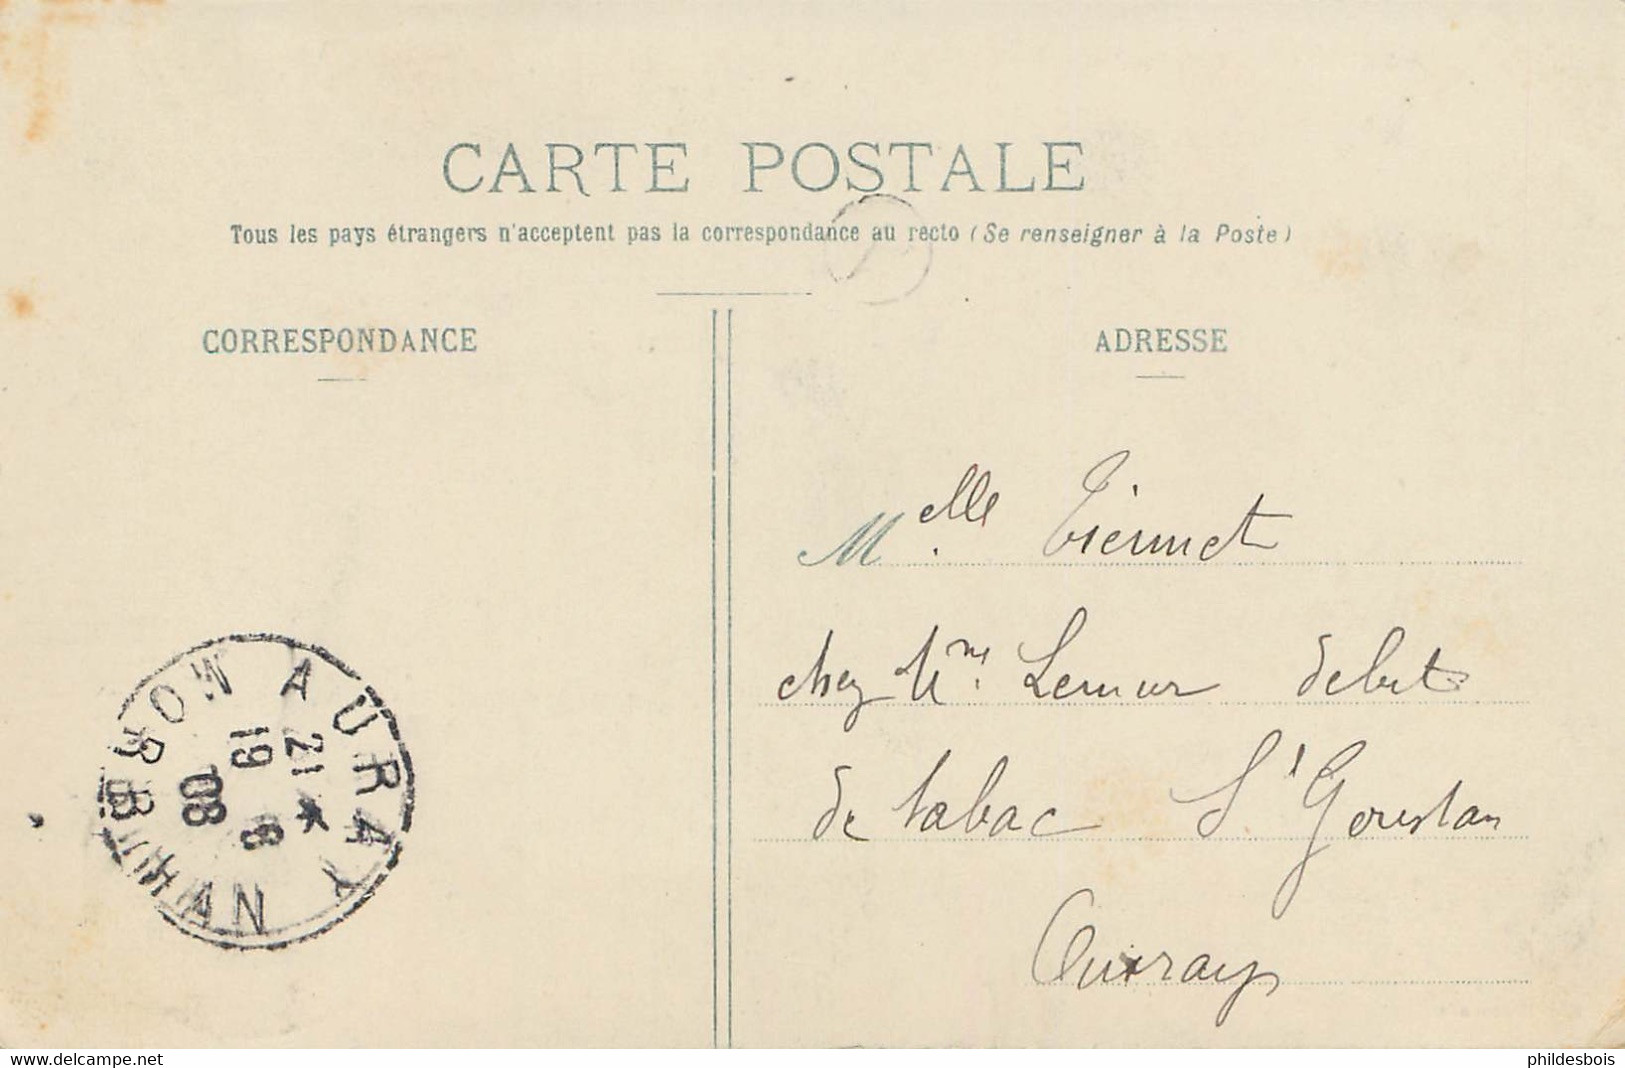 CARTE POSTALE
Tous les pays étrangers n'acceptent pas la correspondance au recto (Se renseigner à la Poste)
CORRESPONDANCE
ADRESSE
Melle
chez Mme Lemur debit
de tabac St Goustan
Auray
AURAY MORBIHAN
21* 19 8 08
www.delcampe.net
phildesbois